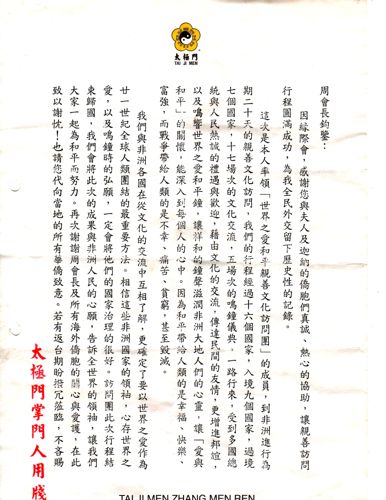 太極門
TAI JI MEN
周會長鈞鑒：
因緣際會，感謝您與夫人及迦納的僑胞們真誠、熱心的協助，讓親善訪問
行程圓滿成功，為我全民外交留下歷史性的記錄。
這次是本人率領「世界之愛和平親善文化訪問團」的成員，到非洲進行為
期二十天的親善文化訪問，我們的行程經過十六個國家，入境九個國家，過境
七個國家，十七場次的文化交流，五場次的鳴鐘儀典，一路行來，受到多國總
統與人民熱誠的禮遇與歡迎，藉由文化的交流，傳達民間的友情，更增進邦誼，
以及鳴響世界之愛和平鐘，讓祥和的鐘聲滋潤非洲大地人們的心靈，讓「愛與
和平」的關懷，能深入到每個人的心中。因為和平帶給人類的是幸福、快樂、
富強，而戰爭帶給人類的是不幸、痛苦、貧窮，甚至毀滅。
我們與非洲各國在從文化的交流中互相了解，更確定了要以世界之愛作為
廿一世紀全球人類團結的最重要方法。相信這些非洲國家的領袖，心存世界之
愛，以及鳴鐘時的弘願，一定會將他們的國家治理的很好。訪問團此次行程結
束歸國，我們會將此次的成果與非洲人民的心願，告訴全世界的領袖，讓我們
大家一起為和平而努力。再次謝謝周會長及所有海外僑胞的關心與愛護，在此
致以謝忱！也請您代向當地的所有華僑致意。若有返台期盼撥冗蒞臨，不吝賜
太極門掌門人用牋
TAI JI MEN ZHANG MEN REN